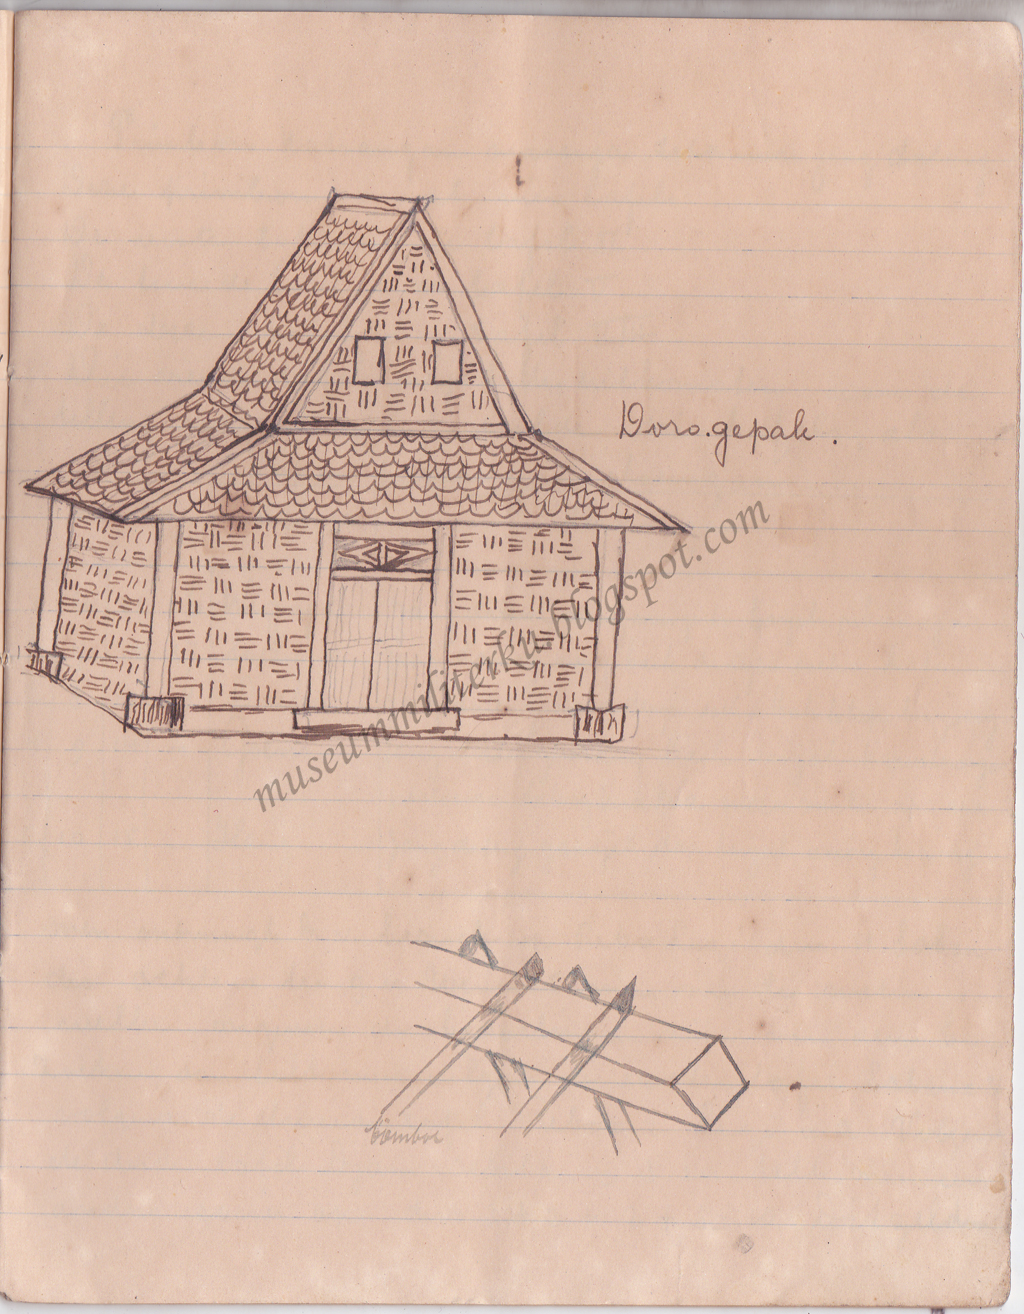 Doro.gepak.
museummiliterku.blogspot.com
bamboe